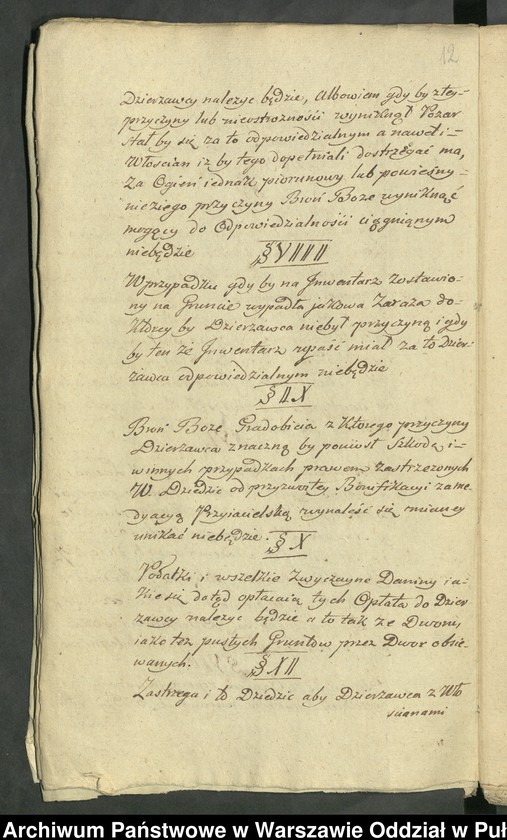 12
Dzierzawcy nalezyc będzie, Albowiem gdy by z tey=
przyczyny lub nieostrozności wyniknął Pożar
stał by się za to odpowiedzialnym a nawet i=
Włoscian iz by tego dopełniali dostrzegać ma,
Za Ogień iednak piorunowy lub
przyczyny Broń Boze wyniknąć
mogący do Odpowiedzialności ciągnionym
niebędzie
§ VIIII
W przypadku gdy by na Inwentarz zostawio=
ny na Gruncie wypadła jakowa Zaraza do=
którey by Dzierzawca niebył przyczyną i gdy
by ten że Inwentarz upaść miał za to Dzier=
zawca odpowiedzialnym niebędzie
§ IX
Broń Boze Gradobicia z którego przyczyny
Dzierzawca znaczną by poniost Szkodę i=
w innych przypadkach prawem zastrzezonych
W. Dziedic od przyzwoitey Bonifikacyi za me
dyacyą Przyiacielską wynalesć się maiącey
unikać niebędzie.
§ X
Podatki i wszelkie zwyczayne Daniny ia=
kie się dotąd opłacaią tych Opłata do Dzier
zawcy nalezyc będzie a to tak ze Dworu,
iako tez pustych Gruntow przez Dwor obsie=
wanych.
§ XII
Zastrzega i to Dziedic aby Dzierzawca z Wło
scianami
Archiwum Państwowe w Warszawie Oddział w Puł